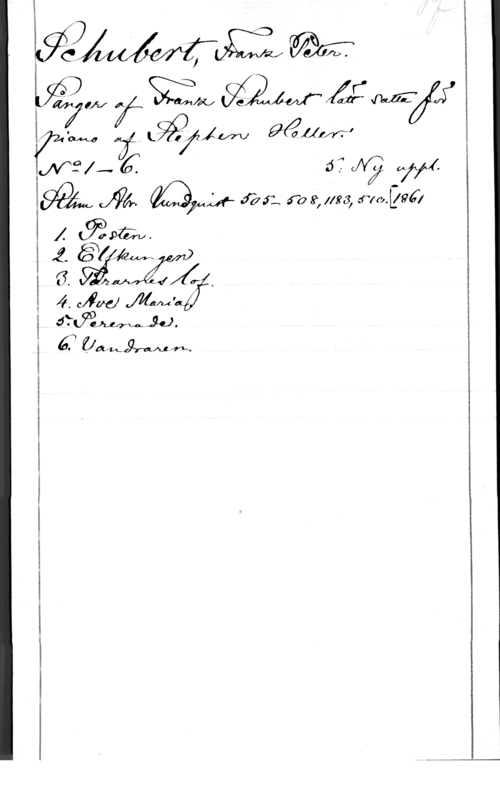 Schubert, Franz Peter.
Sånger af Franz Schubert lätt satta för
piano af Stephen Heller.
Nº 1–6. 5: Ny uppl.
Sthm Abr. Lundquist 505–508, 1183, 510. [1861
1. Posten.
2. Elfkungen
3. Tårarnes lof.
4. Ave Maria
5. Serenade.
6. Vandraren.